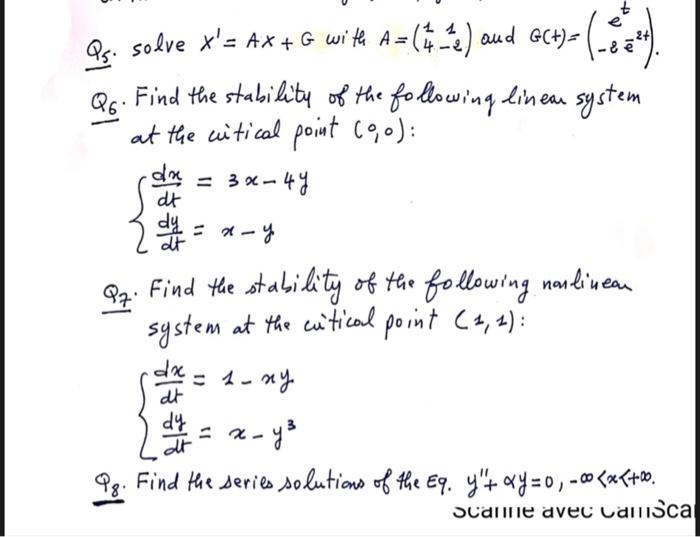 Q5. solve X' = AX + G with A = (1 1 4 -2) and G(t) = (e^t -8 e^-2t).
Q6. Find the stability of the following linear system
at the critical point (0,0):
{ dx/dt = 3x - 4y
dy/dt = x - y
Q7. Find the stability of the following nonlinear
system at the critical point (1,1):
{ dx/dt = 1 - xy
dy/dt = x - y³
Q8. Find the series solutions of the Eq. y" + αy = 0, -∞ < x < +∞.